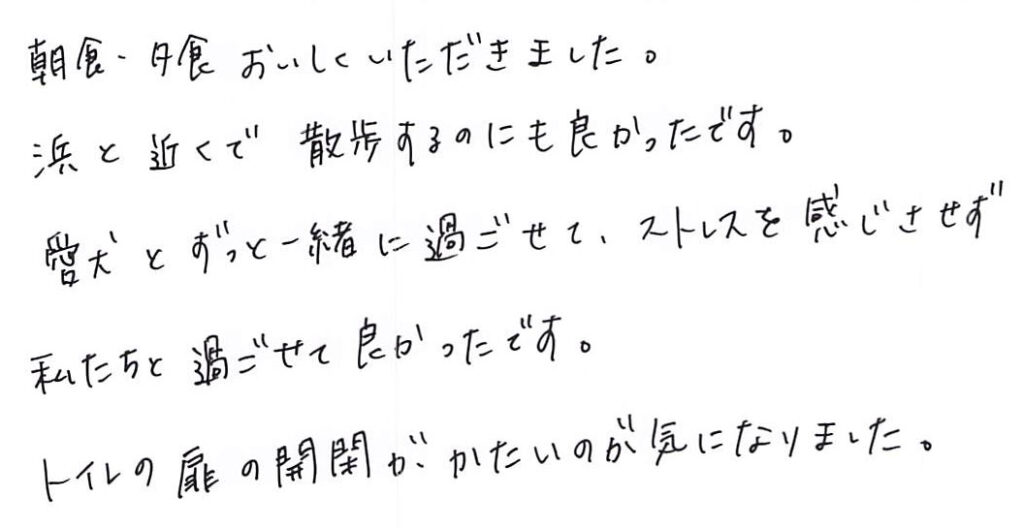 朝食・夕食 おいしくいただきました。
浜と近くで 散歩するのにも良かったです。
愛犬とずっと一緒に過ごせて、ストレスを感じさせず
私たちと過ごせて良かったです。
トイレの扉の開閉がかたいのが気になりました。